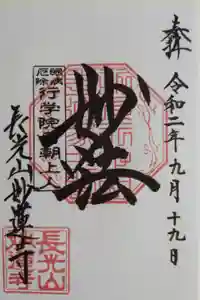 奉拝 令和二年九月十九日
妙法
眼病
厄除
行学院日朝上人
長光山妙蓮寺
長光山
妙蓮寺